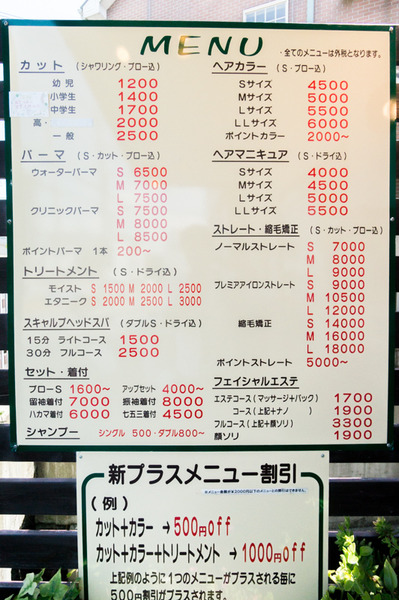 MENU
・全てのメニューは外税となります。
カット (シャワリング・ブロー込)
幼児 1200
小学生 1400
中学生 1700
高・ 2000
一般 2500
パーマ (S・カット・ブロー込)
ウォーターパーマ S 6500
M 7000
L 7500
クリニックパーマ S 7500
M 8000
L 8500
ポイントパーマ 1本 200~
トリートメント (S・ドライ込)
モイスト S 1500 M 2000 L 2500
エタニーク S 2000 M 2500 L 3000
スキャルプヘッドスパ (ダブルS・ドライ込)
15分 ライトコース 1500
30分 フルコース 2500
セット・着付
ブローS 1600~ アップセット 4000~
留袖着付 7000 振袖着付 8000
ハカマ着付 6000 七五三着付 4500
シャンプー シングル 500・ダブル800~
ヘアカラー (S・ブロー込)
Sサイズ 4500
Mサイズ 5000
Lサイズ 5500
LLサイズ 6000
ポイントカラー 2000~
ヘアマニキュア (S・ドライ込)
Sサイズ 4000
Mサイズ 4500
Lサイズ 5000
LLサイズ 5500
ストレート・縮毛矯正 (S・カット・ブロー込)
ノーマルストレート S 7000
M 8000
L 9000
プレミアアイロンストレート S 9000
M 10500
L 12000
縮毛矯正 S 14000
M 16000
L 18000
ポイントストレート 5000~
フェイシャルエステ
エステコース (マッサージ+パック) 1700
コース (上記+ナノ ) 1900
フルコース (上記+顔ソリ) 3300
顔ソリ 1900
新プラスメニュー割引
(例)
カット+カラー → 500円off
カット+カラー+トリートメント → 1000円off
上記例のように1つのメニューがプラスされる毎に
500円割引がプラスされます。